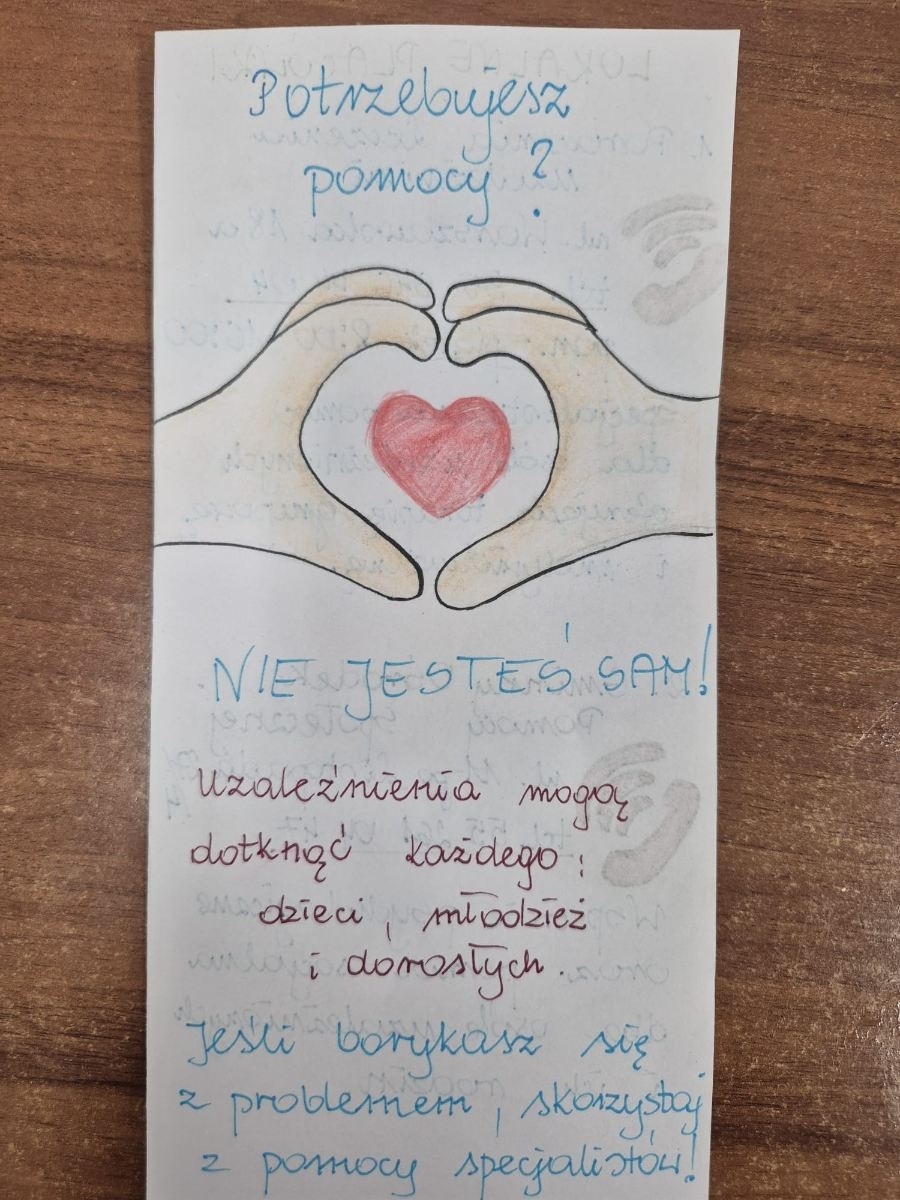 Potrzebujesz
pomocy?
NIE JESTEŚ SAM!
Uzależnienia mogą
dotknąć każdego:
dzieci, młodzież
i dorosłych.
Jeśli borykasz się
z problemem, skorzystaj
z pomocy specjalistów!